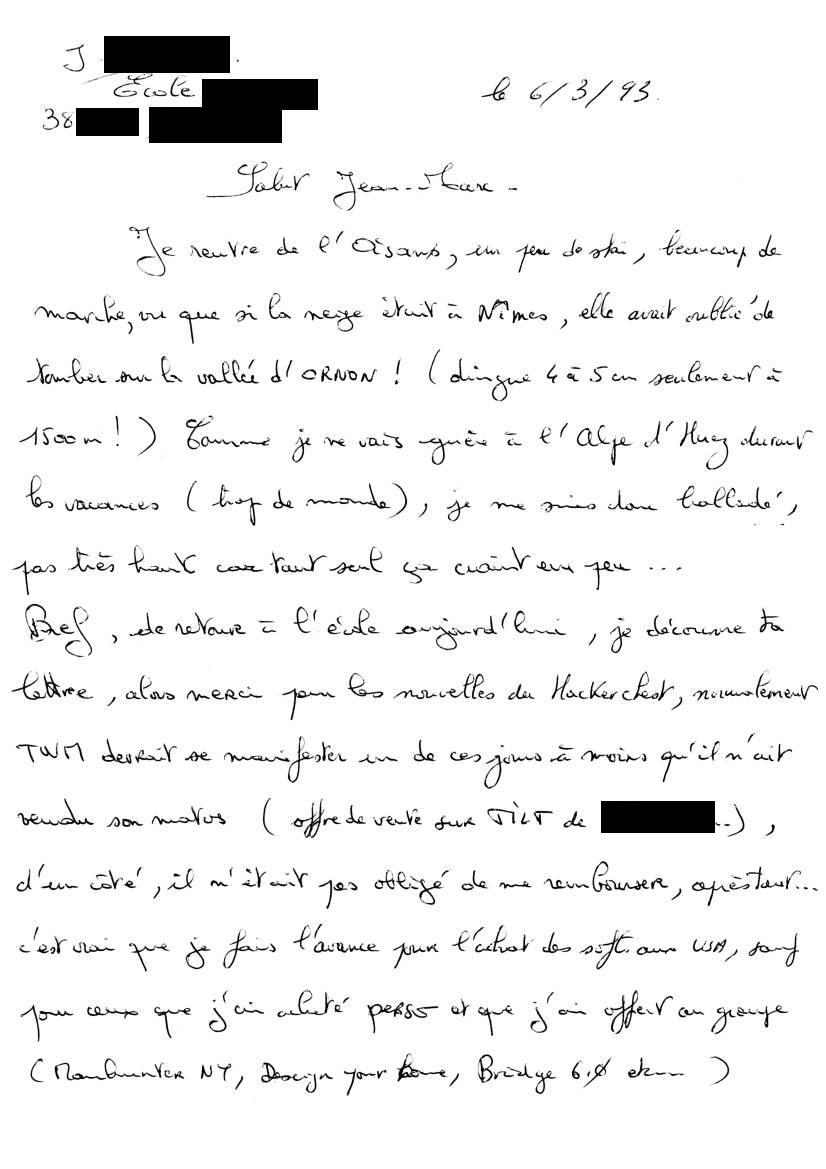 J.
Ecole
38
le 6/3/93.
Salut Jean-Marc -
Je rentre de l'Oisans, un peu de ski, beaucoup de
marche, vu que si la neige était à Nîmes, elle avait oublié de
tomber sur la vallée d'ORNON ! (dingue 4 à 5 cm seulement à
1500 m !) Comme je ne vais guère à l'Alpe d'Huez durant
les vacances (trop de monde), je me suis donc balladé,
pas très haut car tout seul ça craint un peu ...
Bref, de retour à l'école aujourd'hui, je découvre ta
lettre, alors merci pour les nouvelles du Hackerchest, normalement
TWM devrait se manifester un de ces jours à moins qu'il n'ait
vendu son matos (offre de vente sur TILT de ..),
d'un côté, il n'était pas obligé de me rembourser, après tout...
c'est vrai que je fais l'avance pour l'achat des soft. aux USA, sauf
pour ceux que j'ai acheté perso et que j'ai offert au groupe
(Manhunter NY, Design your home, Bridge 6.0 etc)